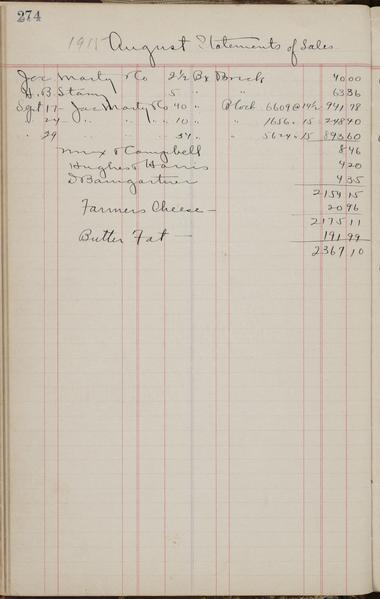 274
1915 August Statements of Sales
Joe Marty & Co 2½ Bx Brick 40 00
H. B. Stamy 5 " " 63 36
Sept 17 - Joe Marty & Co 40 " Block 6609 @ 14¼ 941 78
" 24 - " " " 10 " " 1656 " 15 248 40
" 29 34 " " 5624 " 15 843 60
Max & Campbell 8 46
Hughes & Harris 4 20
D Baumgartner 4 35
2154 15
Farmers Cheese — 20 96
2175 11
Butter Fat — 191 99
2367 10